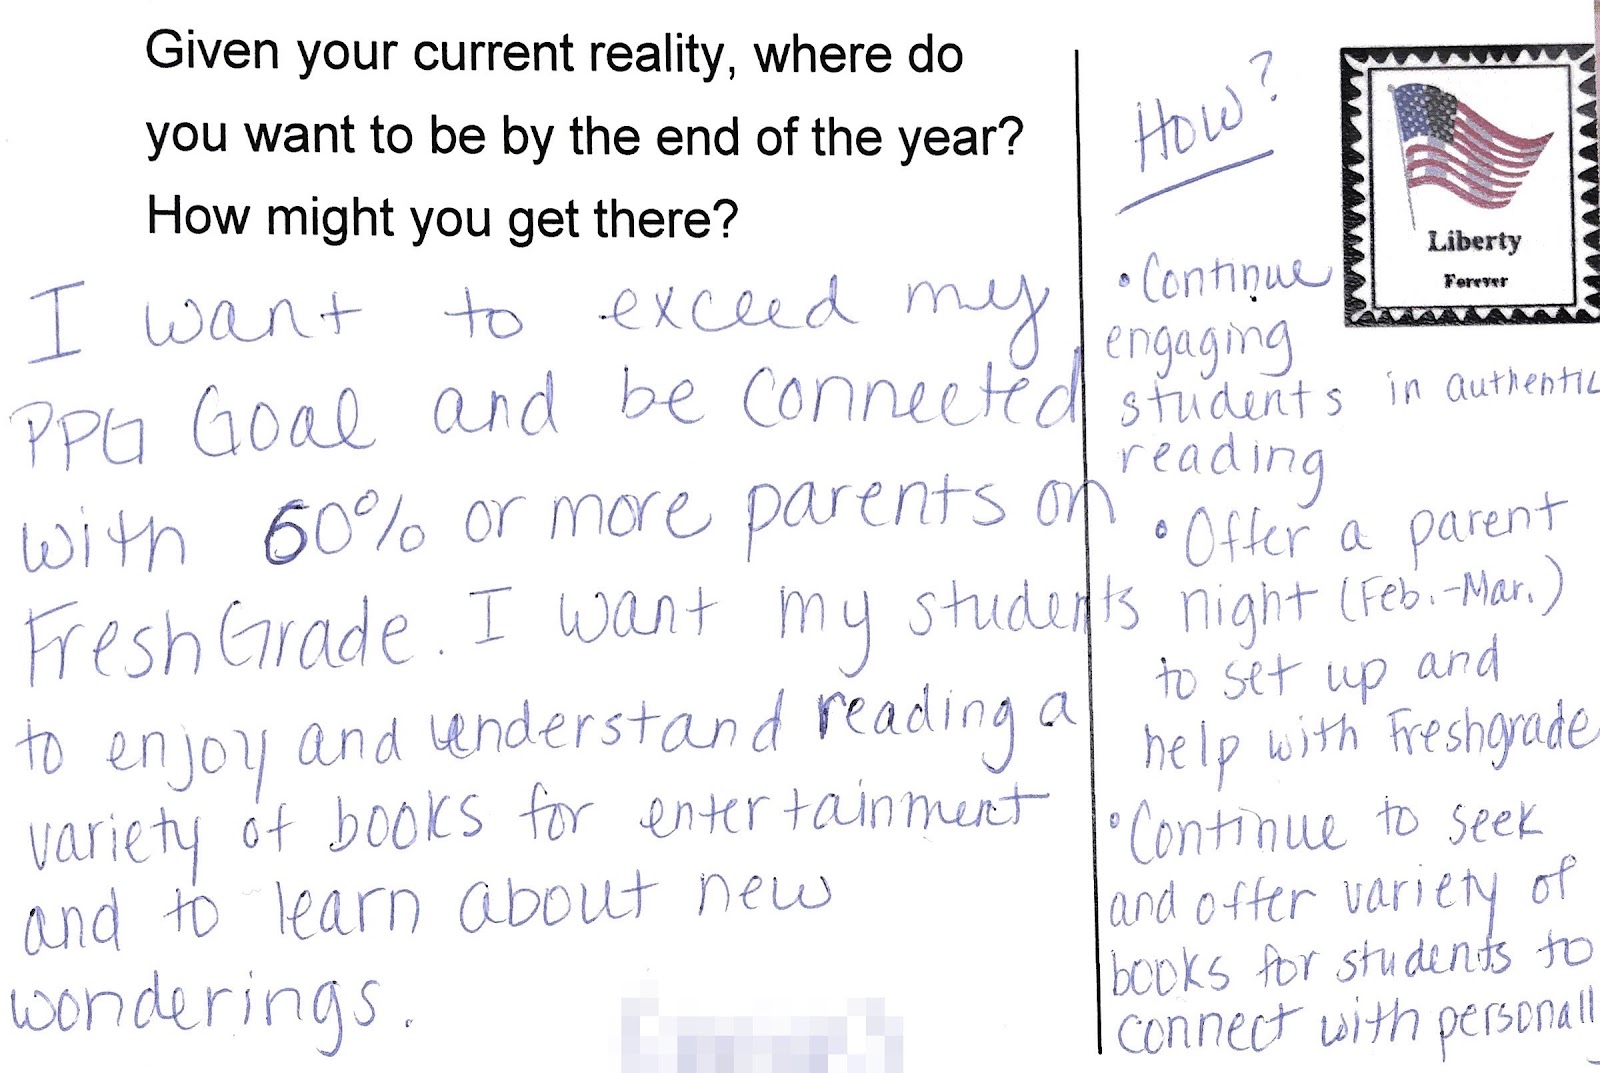 Given your current reality, where do
you want to be by the end of the year?
How might you get there?
I want to exceed my
PPG Goal and be connected
with 60% or more parents on
FreshGrade. I want my students
to enjoy and understand reading a
variety of books for entertainment
and to learn about new
wonderings.
How?
• Continue
engaging
students in authentic
reading
• Offer a parent
night (Feb.-Mar.)
to set up and
help with Freshgrade
• Continue to seek
and offer variety of
books for students to
connect with personall
Liberty
Forever